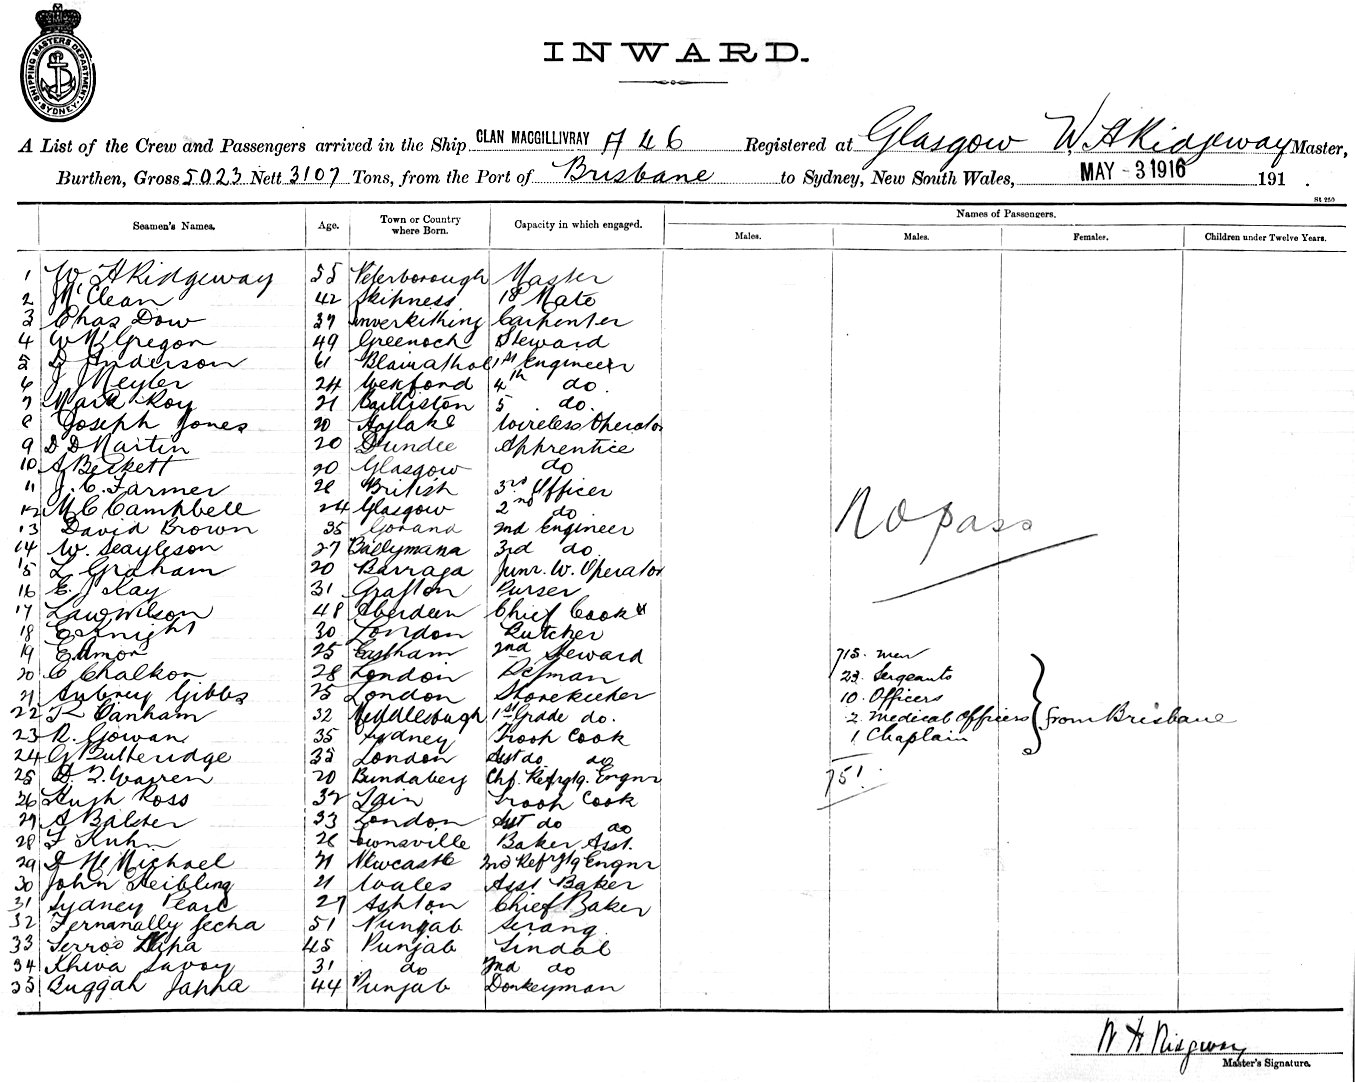 SHIPPING MASTERS DEPARTMENT. SYDNEY
INWARD.
A List of the Crew and Passengers arrived in the Ship CLAN MACGILLIVRAY A 46 Registered at Glasgow W. H Ridgeway Master,
Burthen, Gross 5023 Nett 3107 Tons, from the Port of Brisbane to Sydney, New South Wales, MAY -3 1916 191 .
St 250
Seamen's Names. Age. Town or Country where Born. Capacity in which engaged. Names of Passengers.
Males. Males. Females. Children under Twelve Years.
1 W H Ridgeway 55 Peterborough Master
2 J McClean 42 Skipness 1st Mate
3 Chas Dow 37 Inverkithing Carpenter
4 W McGregor 49 Greenock Steward
5 D Anderson 61 Blairathol 1st Engineer
6 J Meyler 24 Wexford 4th do.
7 Mark Roy 21 Bailliston 5 do.
8 Joseph Jones 20 Hoylake Wireless Operator
9 D D Martin 20 Dundee Apprentice
10 A Beckett 20 Glasgow do
11 J. C. Farmer 26 British 3rd Officer
12 M C Campbell 24 Glasgow 2nd do.
13 David Brown 35 2nd Engineer
14 W. 27 Ballymana 3rd do.
15 L Graham 20 Barraga Junr. W. Operator
16 E. J Kay 31 Grafton Purser
17 Law Wilson 48 Aberdeen Chief Cook
18 E Knight 30 London Butcher
19 E Amor 25 Eastham 2nd Steward
20 C Chalkon 28 London
21 Aubrey Gibbs 25 London Storekeeper
22 Danham 32 Middlesbugh 1st Grade do.
23 R. Gowan 35 Sydney Troop Cook
24 G Butteridge 32 London Asst do do
25 D. Warren 20 Bundaberg Chf. Refrgtg. Engnr
26 Hugh Ross 32 Tain Troop Cook
27 A Balster 33 London Asst do do
28 F Kuhn 26 Townsville Baker Asst.
29 McMichael 21 Newcastle 2nd Refrgtg Engnr
30 John Heibling 21 Wales Asst Baker
31 Sydney Pearc 27 Ashton Chief Baker
32 Fernanally Jecha 51 Punjab Serang
33 45 Punjab Tindal
34 Khiva Savoy 31 do 2nd do
35 Buggah Japha 44 Punjab Donkeyman
No pass
715. men
23. Sergeants
10. Officers
2. Medical Officers
1. Chaplain
from Brisbane
751.
W H Ridgway
Master's Signature.